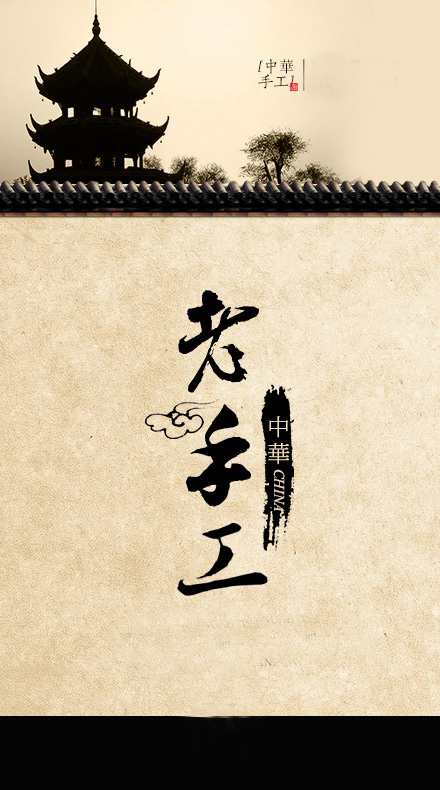 [中華
手工]
老手工
中華 CHINA